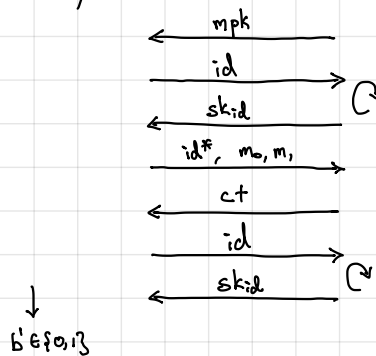 mpk
id
skid
id*, m₀, m₁
ct
id
skid
b' ∈ {0,1}